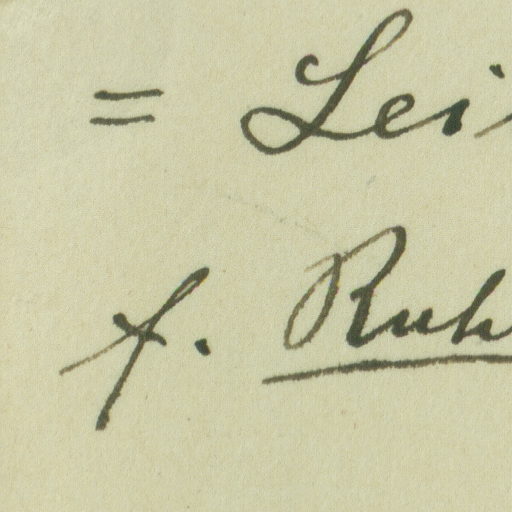 = Lei
f. Ruh